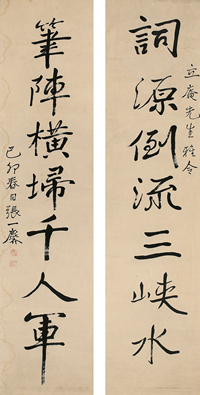 詞源倒流三峽水
立庵先生雅令
筆陣橫埽千人軍
己卯春日張一麐